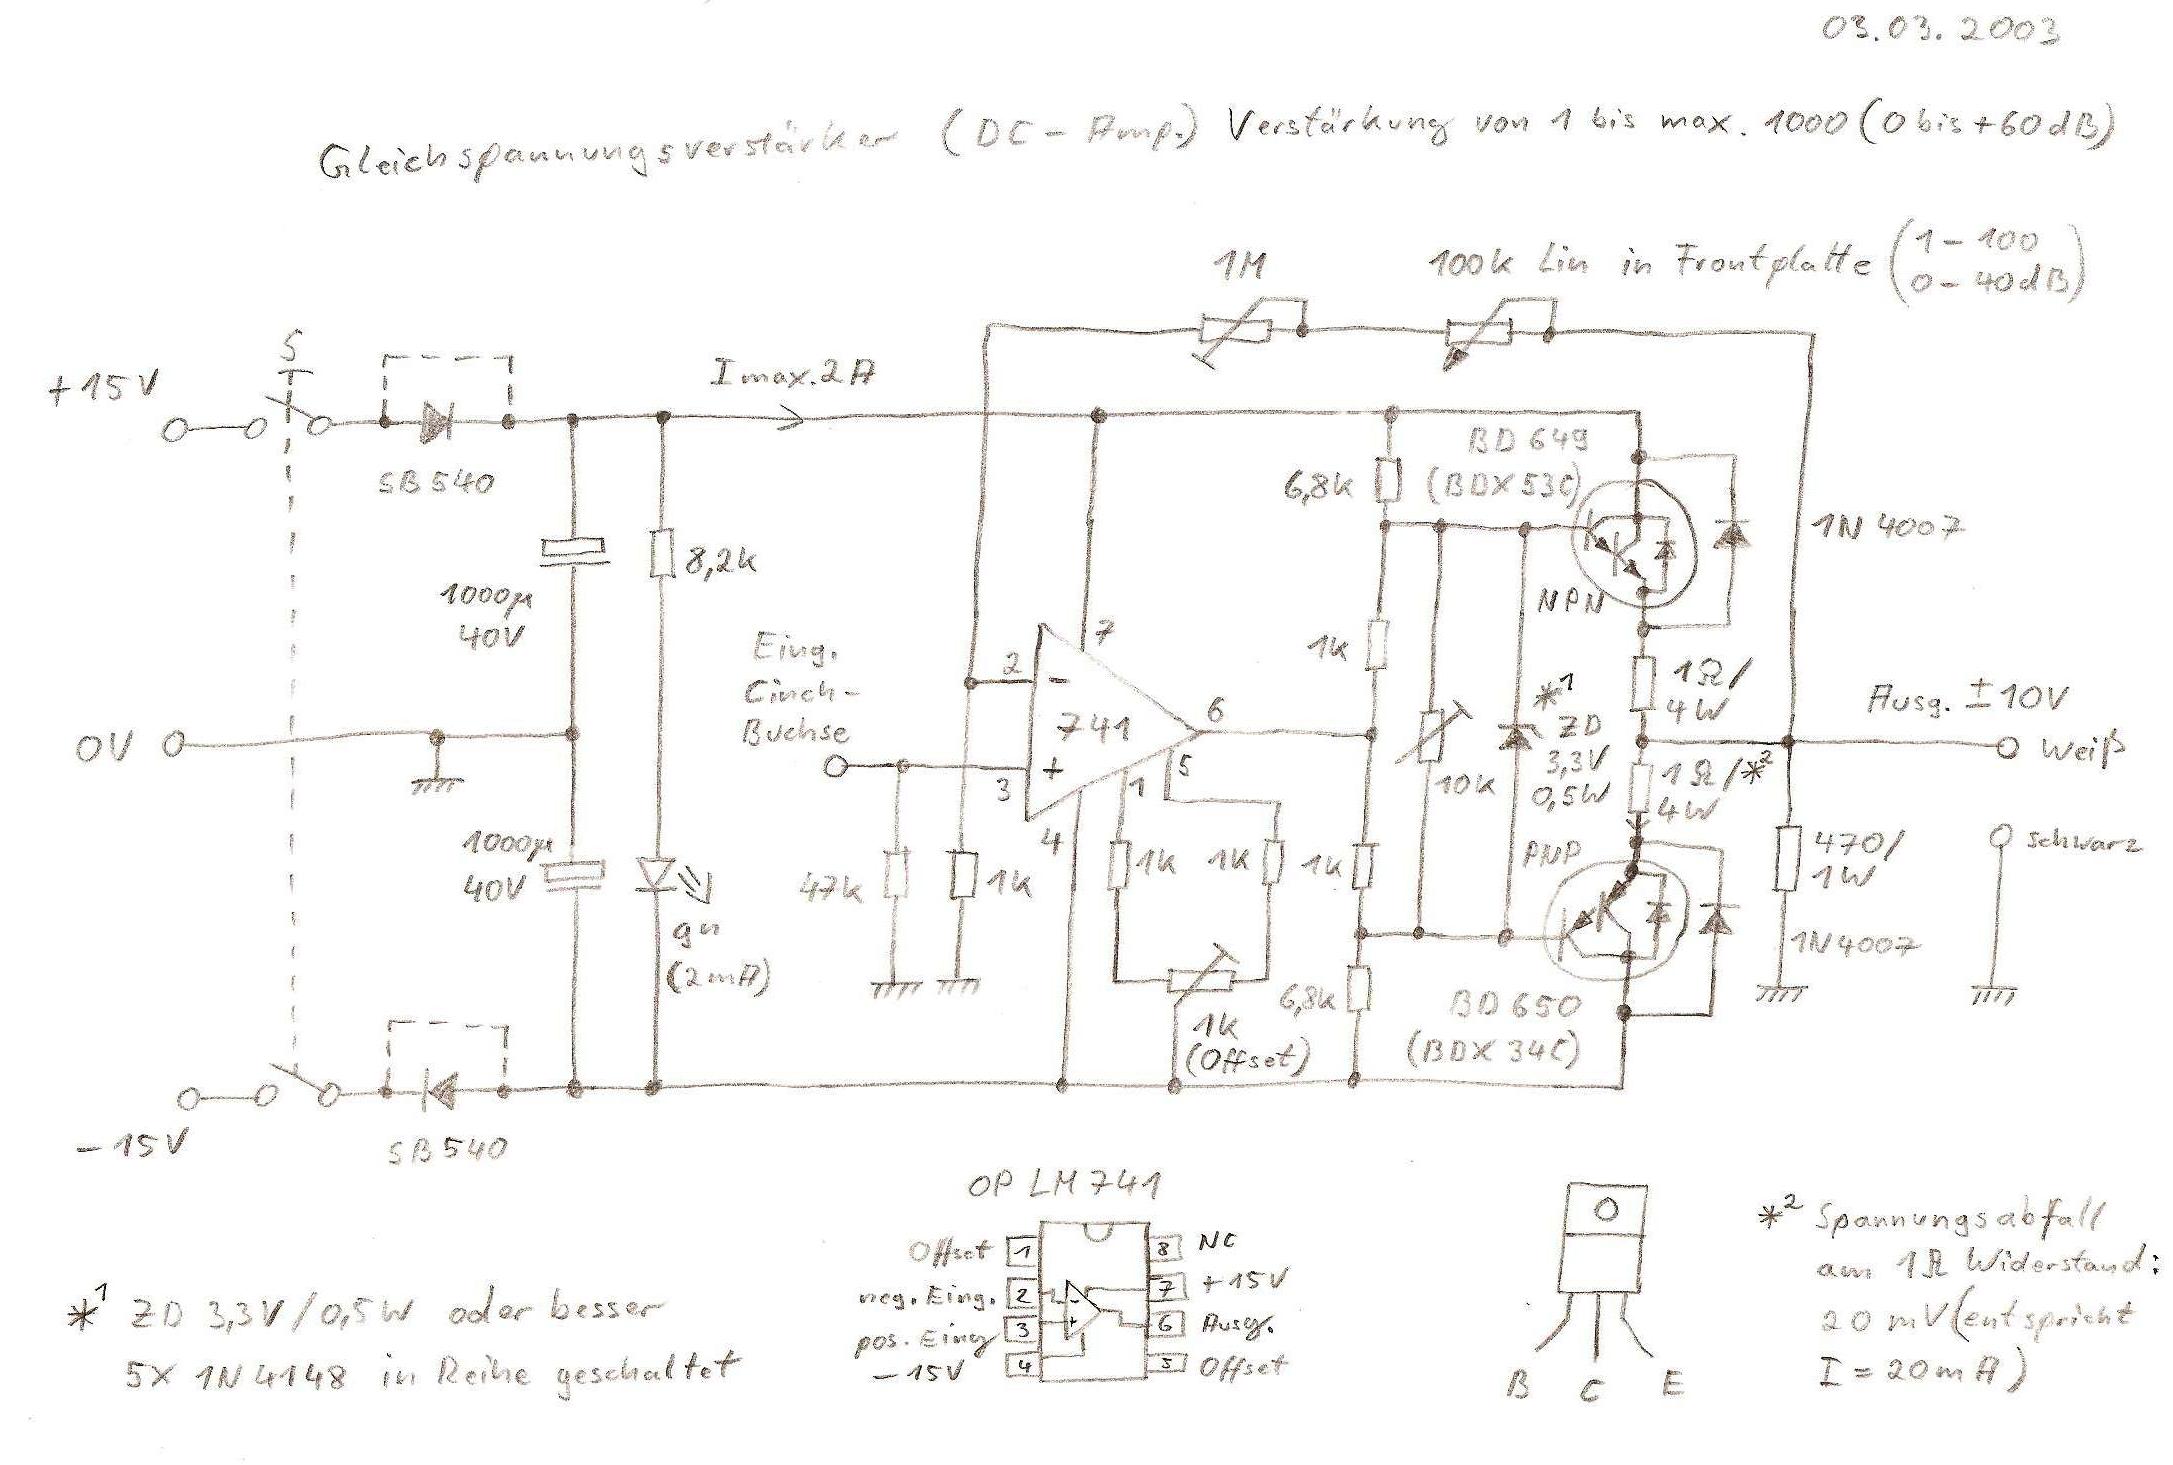 03.03.2003
Gleichspannungsverstärker (DC-Amp.) Verstärkung von 1 bis max. 1000 (0 bis +60dB)
1M
100k Lin in Frontplatte (1-100
0-40dB)
S
+15V
I max. 2A
SB540
BD 649
(BDX 53C)
6,8k
1N 4007
8,2k
1000µ
40V
NPN
Eing.
Cinch-
Buchse
7
1k
2
-
741
6
*1
ZD
3,3V
0,5W
1Ω/
4W
Ausg. ±10V
Weiß
0V
+
3
5
1
4
10k
1Ω/*2
4W
1000µ
40V
47k
1k
1k
1k
1k
PNP
470/
1W
schwarz
gn
(2mA)
1N4007
6,8k
1k
(Offset)
BD 650
(BDX 34C)
-15V
SB540
OP LM741
Offset 1
neg. Eing. 2
pos. Eing 3
-15V 4
8 NC
7 +15V
6 Ausg.
5 Offset
-
+
B C E
*1 ZD 3,3V/0,5W oder besser
5X 1N4148 in Reihe geschaltet
*2 Spannungsabfall
am 1Ω Widerstand:
20mV (entspricht
I=20mA)